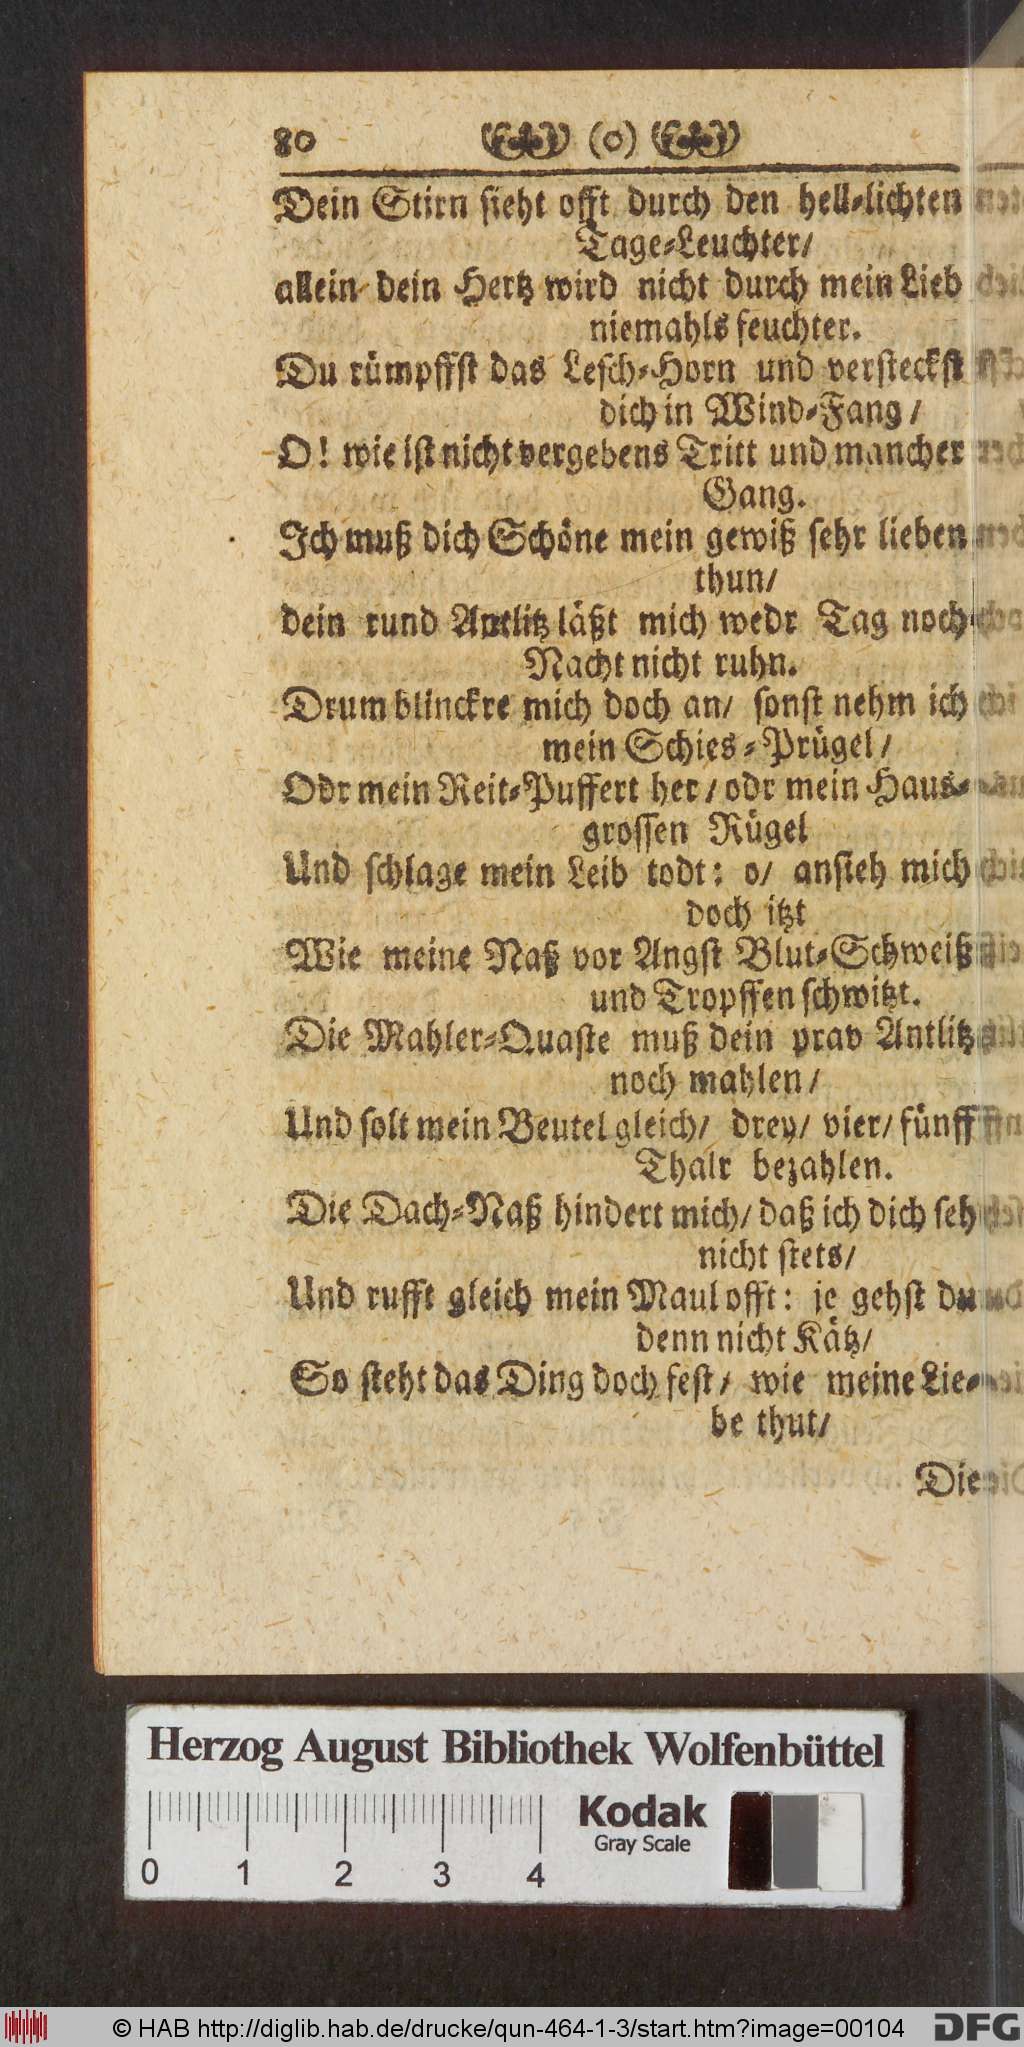 80 (o)
Dein Stirn sieht offt durch den hell-lichten
Tage-Leuchter/
allein dein Hertz wird nicht durch mein Lieb
niemahls feuchter.
Du rümpffst das Lesch-Horn und versteckst
dich in Wind-Fang /
O! wie ist nicht vergebens Tritt und mancher
Gang.
Ich muß dich Schöne mein gewiß sehr lieben
thun/
dein rund Antlitz läßt mich wedr Tag noch
Nacht nicht ruhn.
Drum blinckre mich doch an/ sonst nehm ich
mein Schies-Prügel/
Odr mein Reit-Puffert her / odr mein Haus-
grossen Rügel
Und schlage mein Leib todt: o/ ansieh mich
doch itzt
Wie meine Naß vor Angst Blut-Schweiß
und Tropffen schwitzt.
Die Mahler-Quaste muß dein prav Antlitz
noch mahlen/
Und solt mein Beutel gleich/ drey/ vier/ fünff
Thalr bezahlen.
Die Dach-Naß hindert mich/ daß ich dich seh
nicht stets/
Und rufft gleich mein Maul offt: je gehst du
denn nicht Kätz/
So steht das Ding doch fest/ wie meine Lie-
be thut/
Die
Herzog August Bibliothek Wolfenbüttel
Kodak
Gray Scale
0 1 2 3 4
© HAB http://diglib.hab.de/drucke/qun-464-1-3/start.htm?image=00104
DFG